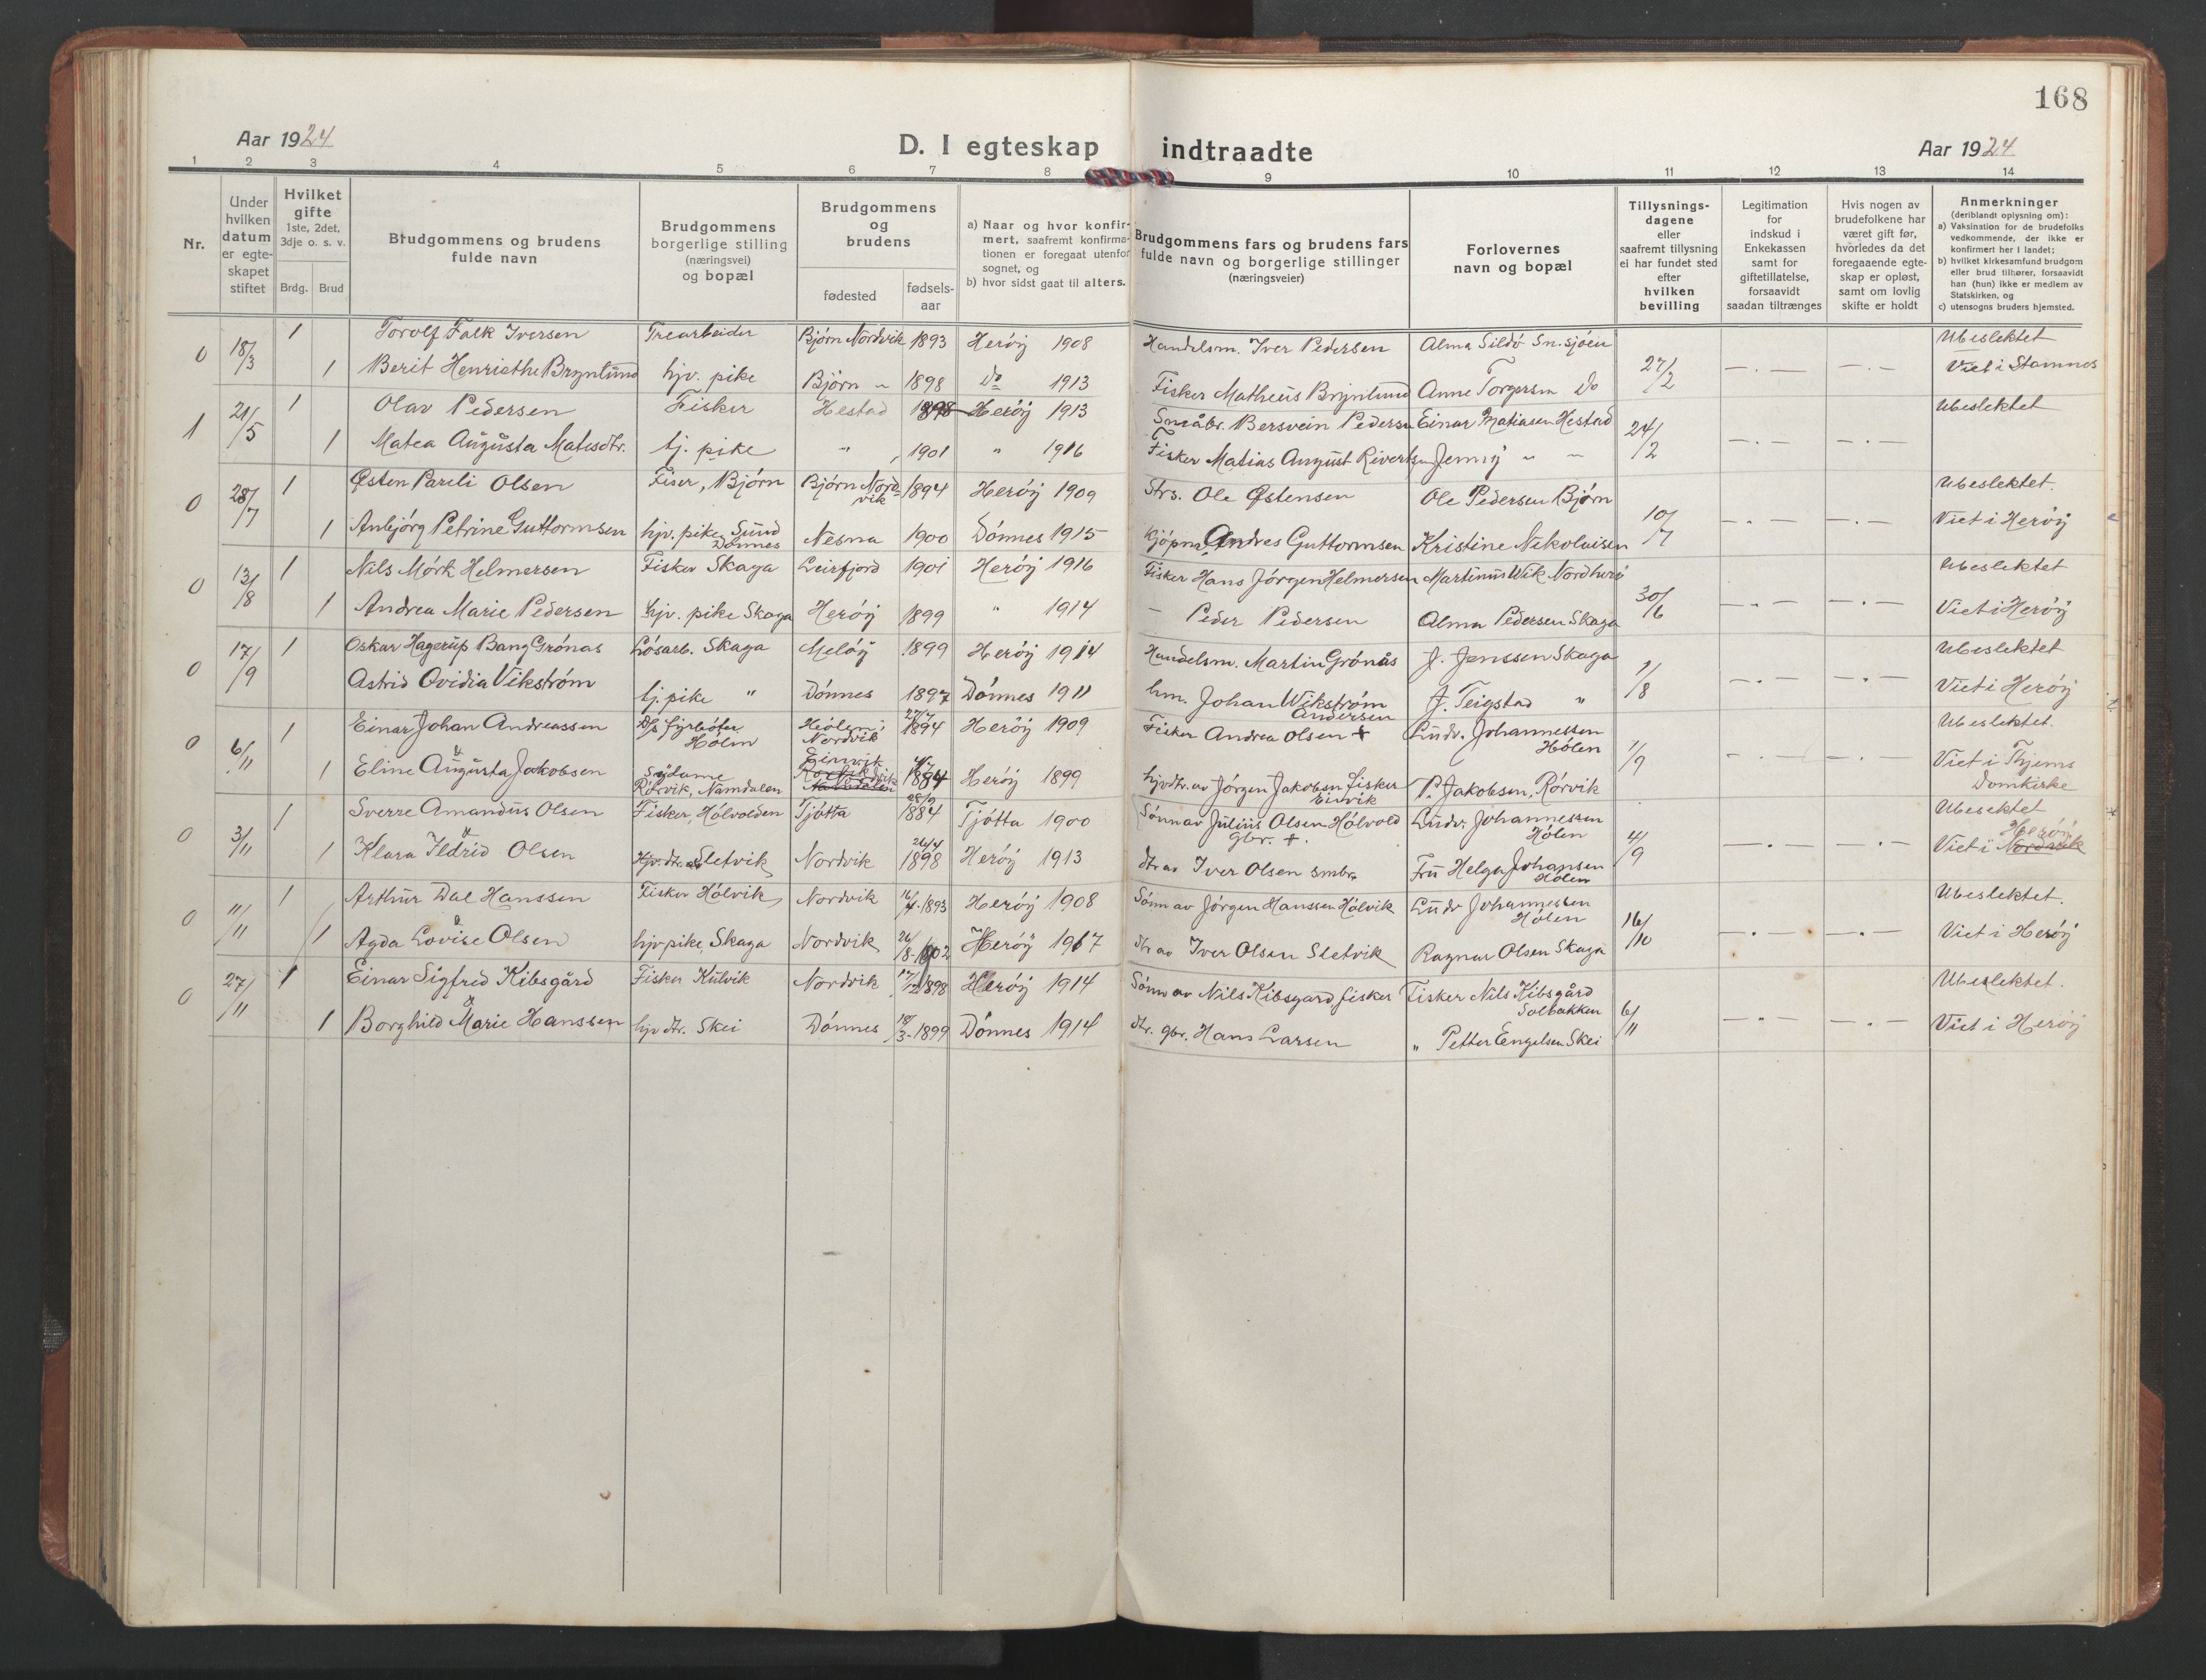 168
Aar 1924
D. I egteskap indtraadte
Aar 1924
1 2 3 4 5 6 7 8 9 10 11 12 13 14
Nr.
Under hvilken datum er egteskapet stiftet
Hvilket gifte 1ste, 2det, 3dje o. s. v.
Brdg. Brud
Brudgommens og brudens fulde navn
Brudgommens borgerlige stilling (næringsvei) og bopæl
Brudgommens og brudens
fødested fødsels-aar
a) Naar og hvor konfirmert, saafremt konfirmationen er foregaat utenfor sognet, og
b) hvor sidst gaat til alters.
Brudgommens fars og brudens fars fulde navn og borgerlige stillinger (næringsveier)
Forlovernes navn og bopæl
Tillysnings-dagene eller saafremt tillysning ei har fundet sted efter hvilken bevilling
Legitimation for indskud i Enkekassen samt for giftetillatelse, forsaavidt saadan tiltrænges
Hvis nogen av brudefolkene har været gift før, hvorledes da det foregaaende egteskap er opløst, samt om lovlig skifte er holdt
Anmerkninger (deriblandt oplysning om):
a) Vaksination for de brudefolks vedkommende, der ikke er konfirmert her i landet;
b) hvilket kirkesamfund brudgom eller brud tilhører, forsaavidt han (hun) ikke er medlem av Statskirken, og
c) utensogns bruders hjemsted.
0 18/3 1 Torolf Falk Iversen Trearbeider Bjørn Nordvik 1893 Herøy 1908 Handelsm. Iver Pedersen Alma Sildø Sn.sjøen 27/2 Ubeslektet
1 Berit Henriethe Brynlund hjv. pike Bjørn " 1898 do 1913 Fisker Matheus Brynlund Anne Torgersen do Viet i Stamnes
1 21/5 1 Olav Pedersen Fisker Hestad 1898 Herøy 1913 Småbr. Bersvein Pedersen Einar Matiasen Hestad 24/2 Ubeslektet
1 Matea Augusta Matesdtr. tj. pike " 1901 " 1916 Fisker Matias August Rivertsen Jenny " "
0 28/7 1 Østen Pareli Olsen Fiser, Bjørn Bjørn Nordvik 1894 Herøy 1909 Strs. Ole Østensen Ole Pedersen Bjørn 10/7 Ubeslektet.
1 Anbjørg Petrine Guttormsen hjv. pike Sund Dønnes Nesna 1900 Dønnes 1915 Kjøpm. Andres Guttormsen Kristine Nikolaisen Viet i Herøy
0 13/8 1 Nils Mørk Helmersen Fisker Skaga Leirfjord 1901 Herøy 1916 Fisker Hans Jørgen Helmersen Martinus Wik Nordherø 30/6 Ubeslektet
1 Andrea Marie Pedersen hjv. pike Skaga Herøy 1899 " 1914 – Peder Pedersen Alma Pedersen Skaga Viet i Herøy
0 17/9 1 Oskar Hagerup Bang Grønas Løsarb. Skaga Meløy 1899 Herøy 1914 Handelsm. Martin Grønås J. Jenssen Skaga 1/8 Ubeslektet
Astrid Ovidia Vikstrøm tj. pike " Dønnes 1897 Dønnes 1911 hm. Johan Wikstrøm Andersen J. Teigstad " Viet i Herøy
0 6/11 1 Einar Johan Andreassen D/s fyrbøter Hølen Hølen i Nordvik 27/7 1894 Herøy 1909 Fisker Andrea Olsen + Ludv. Johannessen Hølen 1/9 Ubeslektet.
1 Eline Augusta Jakobsen Sydame Rørvik, Namdalen Einvik 1884 Herøy 1899 hjvdtr. av Jørgen Jakobsen fisker Einvik P. Jakobsen, Rørvik Viet i Thjems Domkirke
0 3/11 1 Sverre Amandus Olsen Fisker, Hølvolden Tjøtta 28/9 1884 Tjøtta 1900 Sønn av Julius Olsen Hølvold gbr. +. Ludv. Johannessen Hølen 4/9 Ubesektet
1 Klara Ildrid Olsen Hjv. dtr. Sletvik Nordvik 26/4 1898 Herøy 1913 dtr av Iver Olsen smbr. Fru Helga Johansen Hølen Viet i Nordvik Herøy
0 11/11 1 Arthur Dal Hanssen Fisker Hølvik Nordvik 16/4. 1893 Herøy 1908 Sønn av Jørgen Hanssen Hølvik Ludv Johannessen Hølen 16/10 Ubeslektet.
1 Agda Lovise Olsen hjv pike, Skaga Nordvik 26/8-1902 Herøy 1917 dtr av Iver Olsen Sletvik Ragnar Olsen Skaga Viet i Herøy
0 27/11 1 Einar Sigfred Kibsgård Fisker Kulvik Nordvik 17/12 1898 Herøy 1914 Sønn av Nils Kibsgard, fisker Fisker Nils Kibsgård Solbakken 6/11 Ubeslektet.
1 Borghild Marie Hanssen hjv dtr. Skei Dønnes 18/3-1899 Dønnes 1914 dtr. gbr. Hans Larsen " Petter Engelsen Skei Viet i Herøy